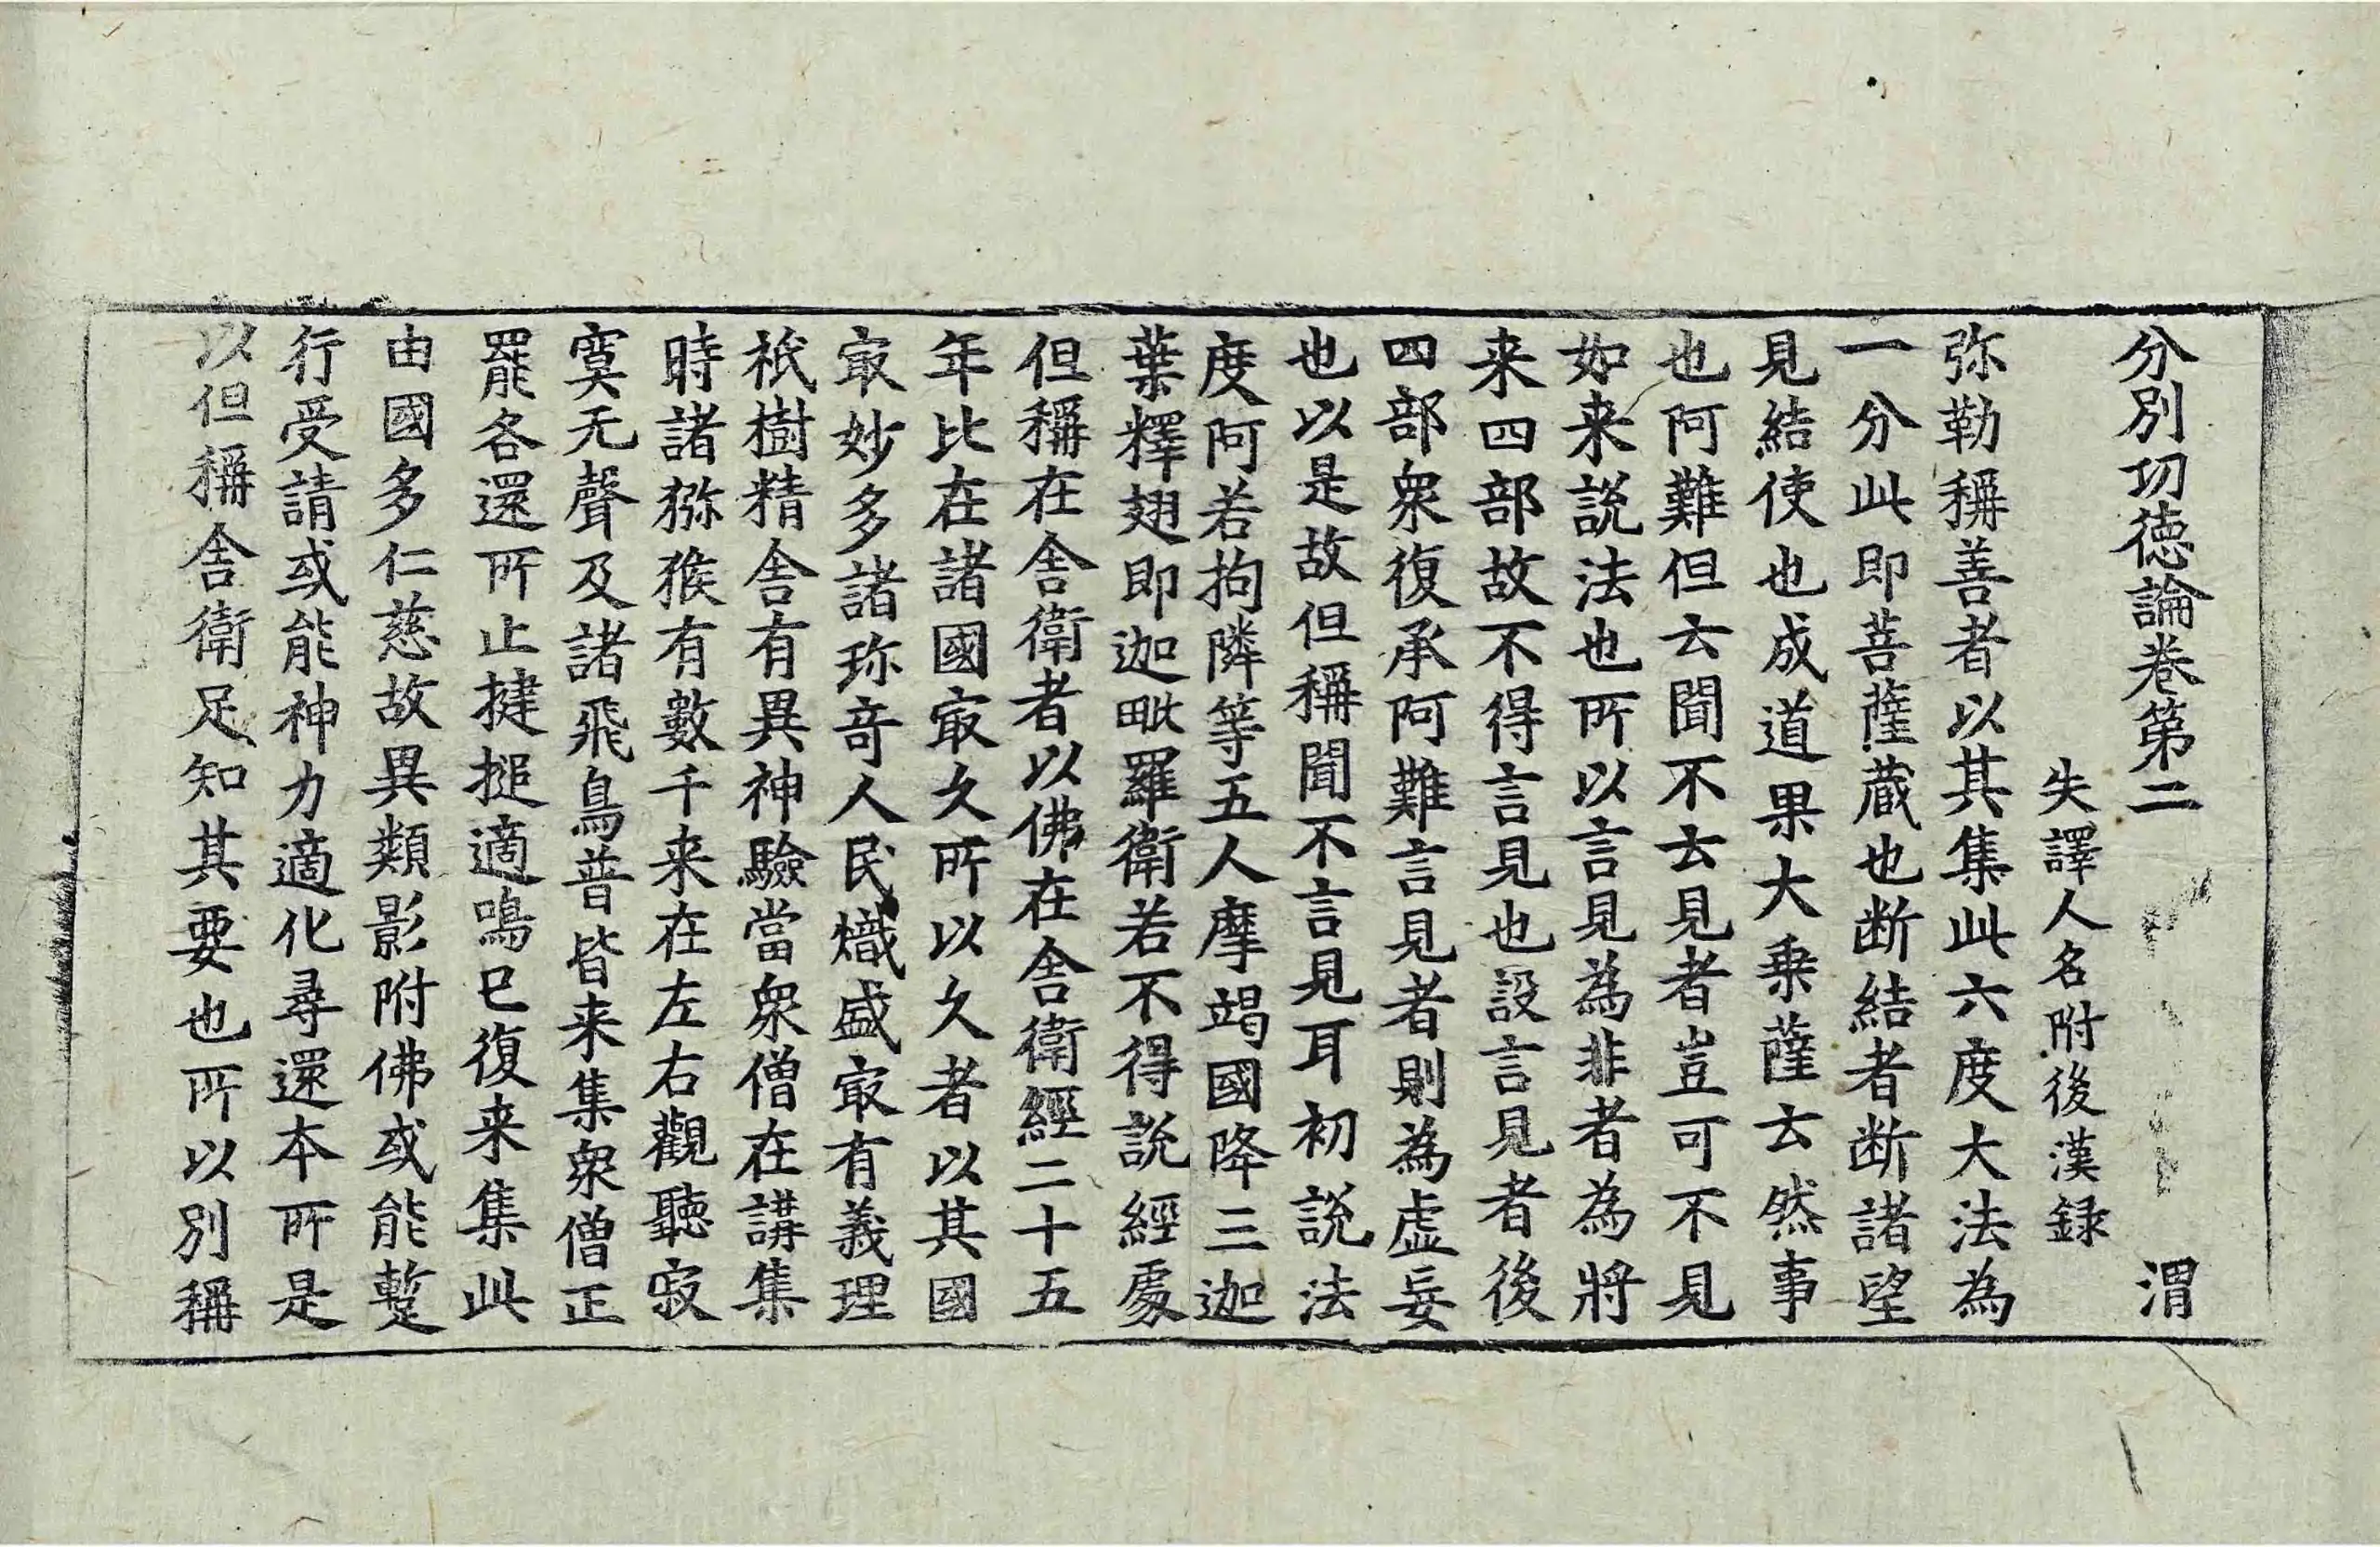 分別功德論卷第二　渭
失譯人名附後漢録
弥勒稱善者以其集此六度大法為
一分此即菩薩蔵也断結者断諸望
見結使也成道果大乗薩云然事
也阿難但云聞不云見者豈可不見
如来說法也所以言見為非者為將
来四部故不得言見也設言見者後
四部衆復承阿難言見者則為虛妄
也以是故但稱聞不言見耳初說法
度阿若拘隣等五人摩竭國降三迦
葉釋翅即迦毗羅衛若不得說經處
但稱在舎衛者以佛在舎衛經二十五
年比在諸國㝡久所以久者以其國
㝡妙多諸珎奇人民熾盛㝡有義理
祇樹精舎有異神驗當衆僧在講集
時諸猕猴有數千来在左右觀聽寂
寞无聲及諸飛鳥普皆来集衆僧正
罷各還所止揵搥適鳴已復来集此
由國多仁慈故異類影附佛或能蹔
行受請或能神力適化尋還本所是
以但稱舎衛足知其要也所以別稱